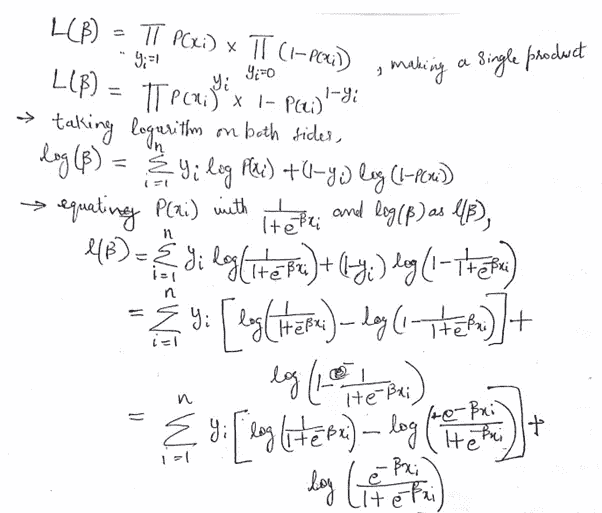 L(β) = ∏ P(xi) × ∏ (1-P(xi)) , making a single product
yi=1 yi=0
L(β) = ∏ P(xi)^yi × 1 - P(xi)^1-yi
→ taking logarithm on both sides,
log(β) = n∑i=1 yi log P(xi) + (1-yi) log (1-P(xi))
→ equating P(xi) with 1/(1+e^-βxi) and log(β) as l(β),
l(β) = n∑i=1 yi log(1/(1+e^-βxi)) + (1-yi) log (1 - 1/(1+e^-βxi))
= n∑i=1 yi [log(1/(1+e^-βxi)) - log(1 - 1/(1+e^-βxi))] +
log (1 - 1/(1+e^-βxi))
= n∑i=1 yi [log(1/(1+e^-βxi)) - log(e^-βxi/(1+e^-βxi))] +
log (e^-βxi/(1+e^-βxi))